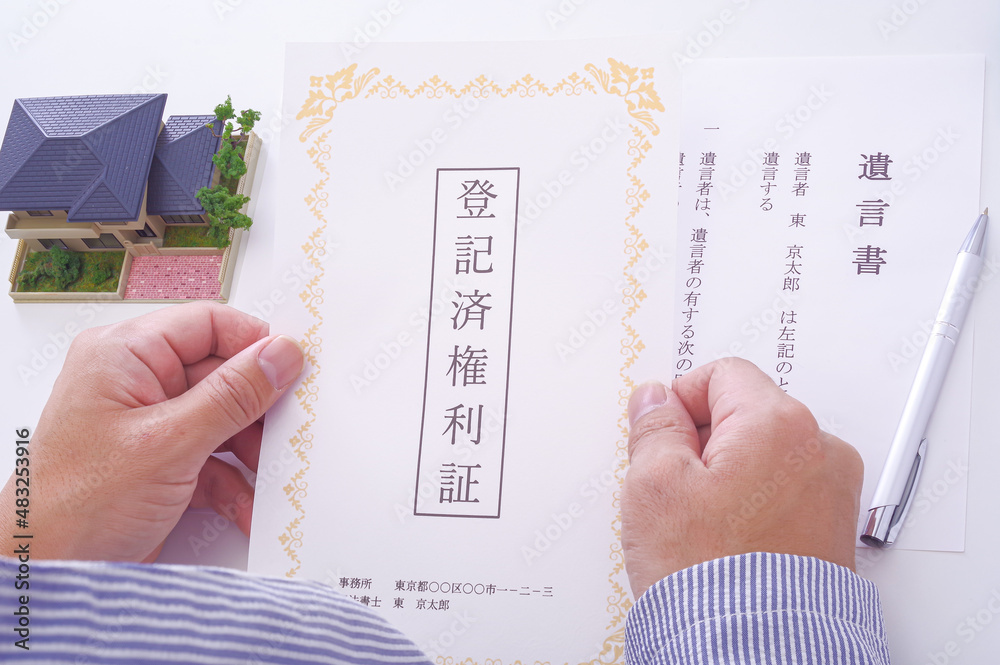 登記済権利証
事務所 東京都〇〇区〇〇市一−二−三
書士 東 京太郎
遺言書
遺言者 東 京太郎 は左記のと
遺言する
一 遺言者は、遺言者の有する次の
Adobe Stock | #483253916